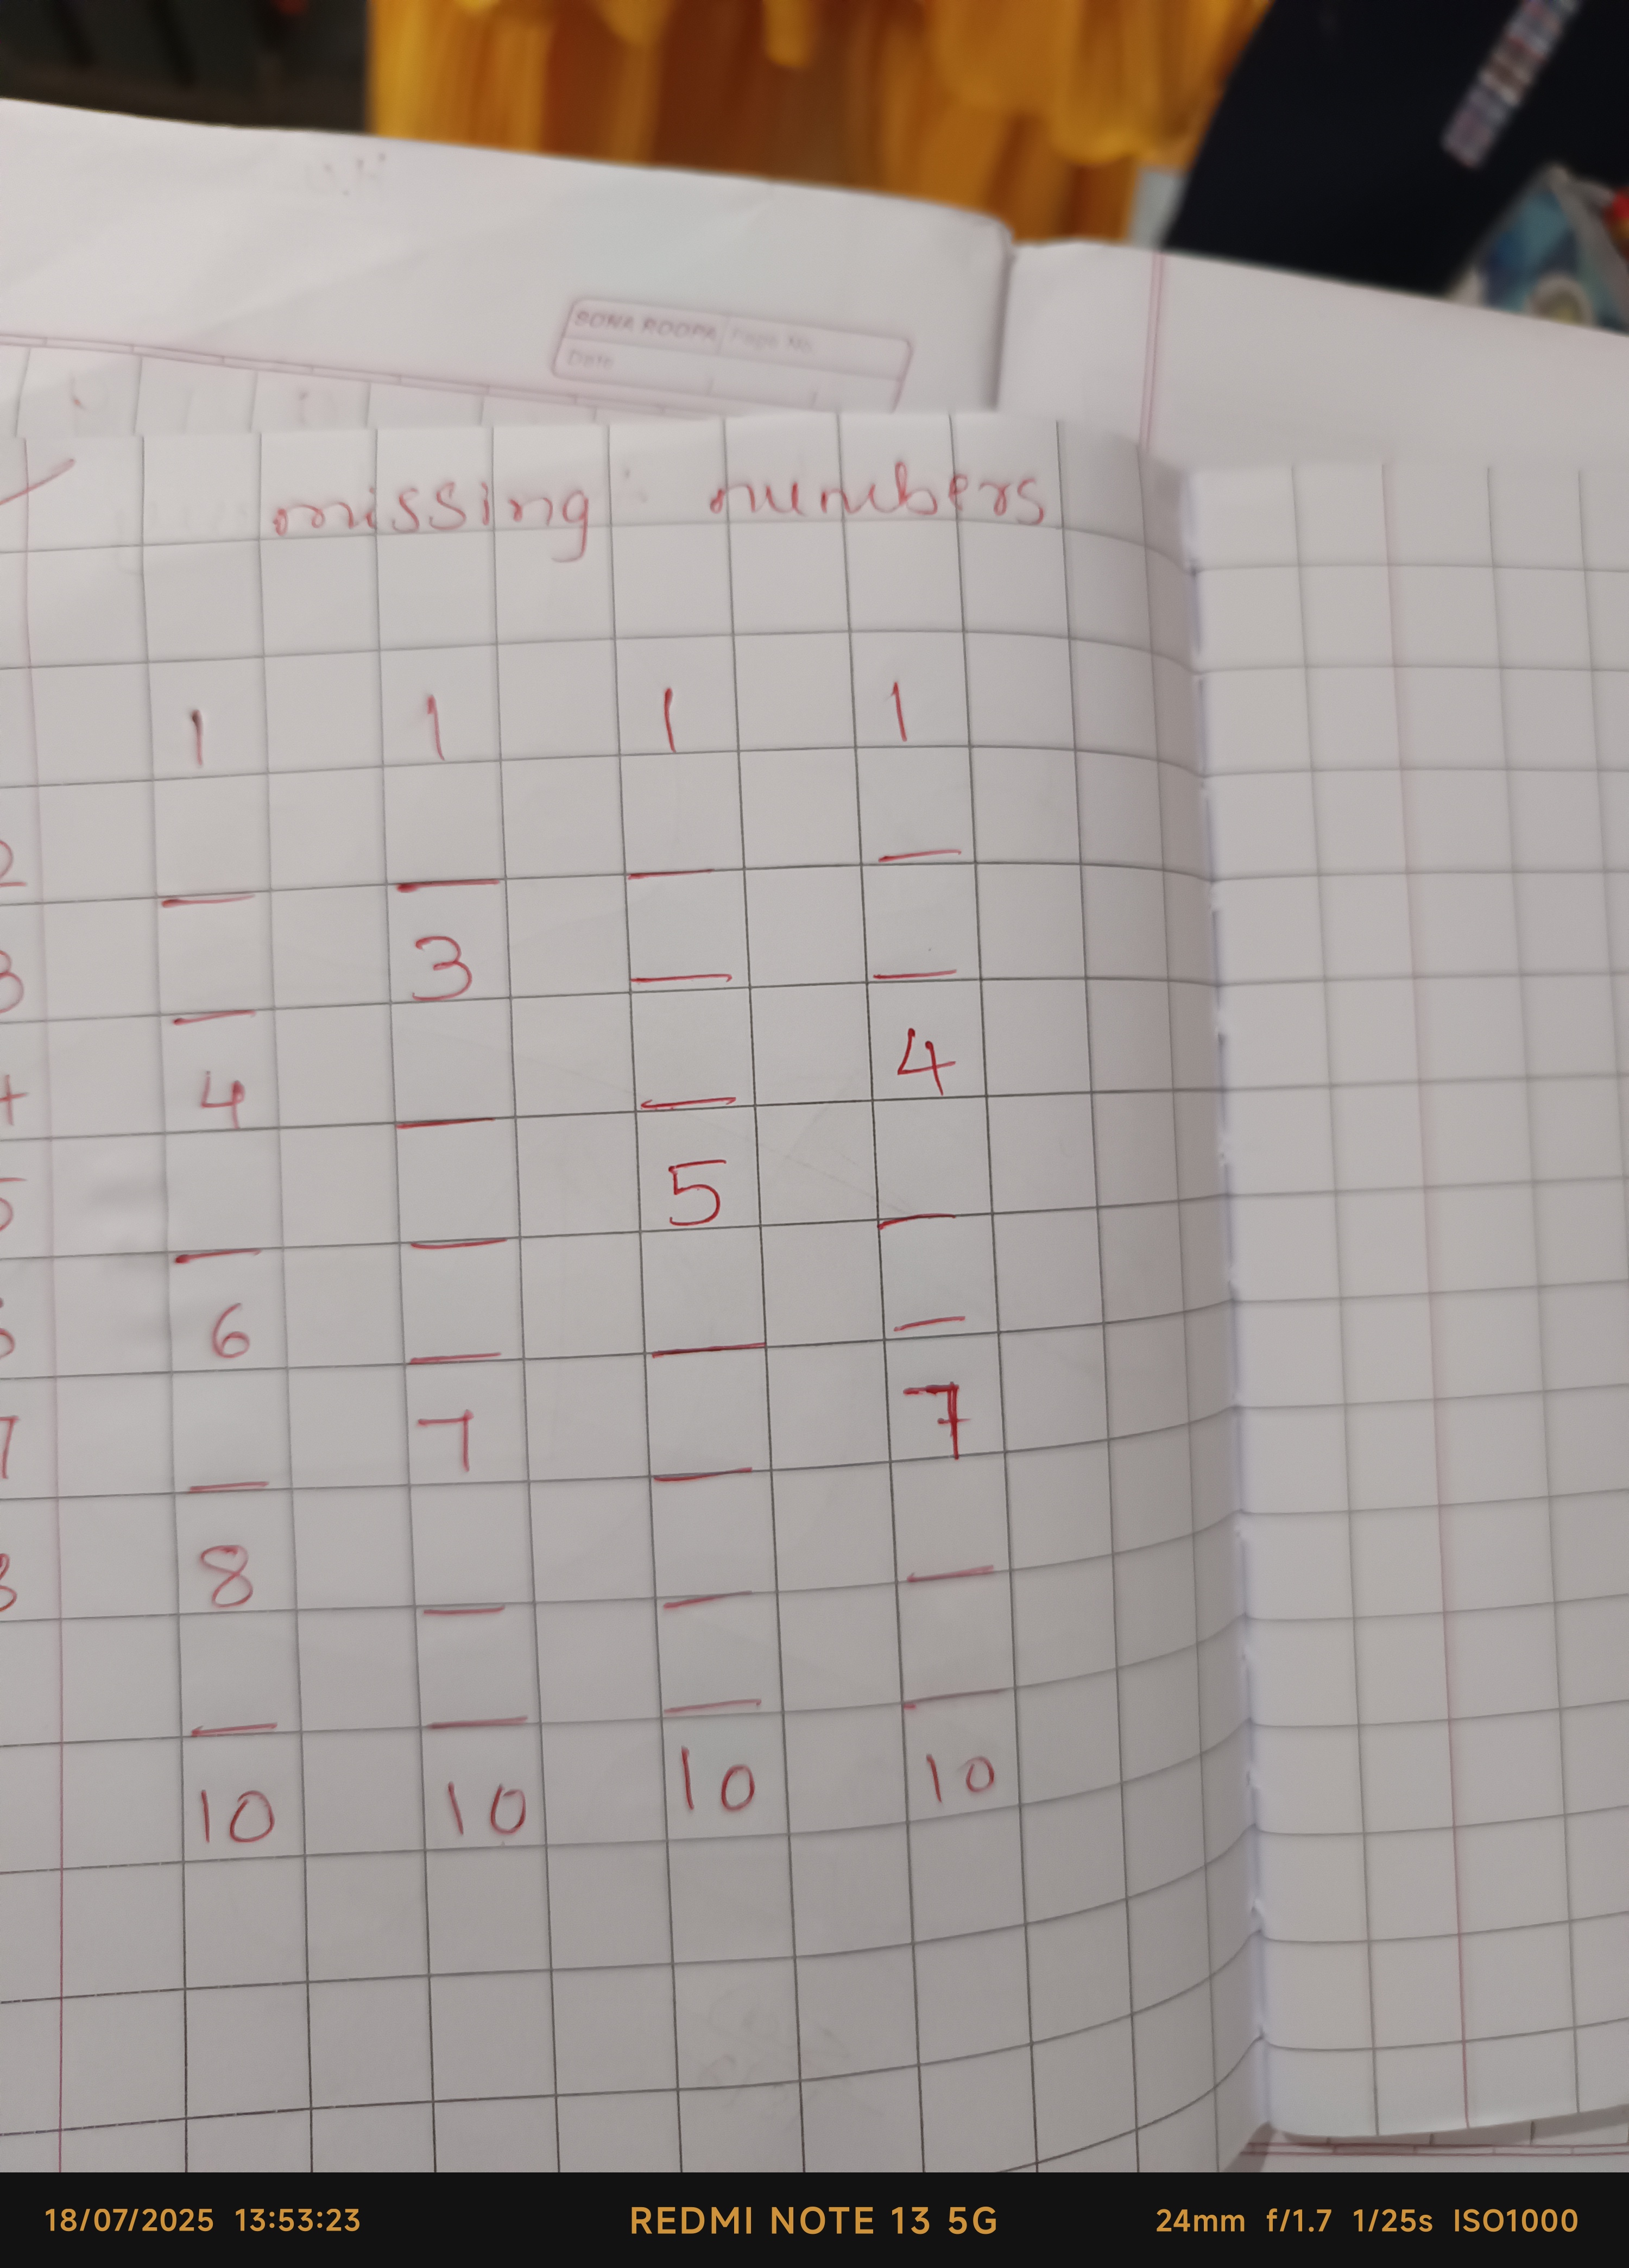 SONA ROOPA Page No.
Date
missing numbers
1 1 1 1
2 __ __ __ __
3 __ 3 __ __
4 __ __ 4
5 __ __ 5 __
6 __ __ __
7 __ 7 __ 7
8 8 __ __ __
__ __ __ __
10 10 10 10
18/07/2025 13:53:23 REDMI NOTE 13 5G 24mm f/1.7 1/25s ISO1000